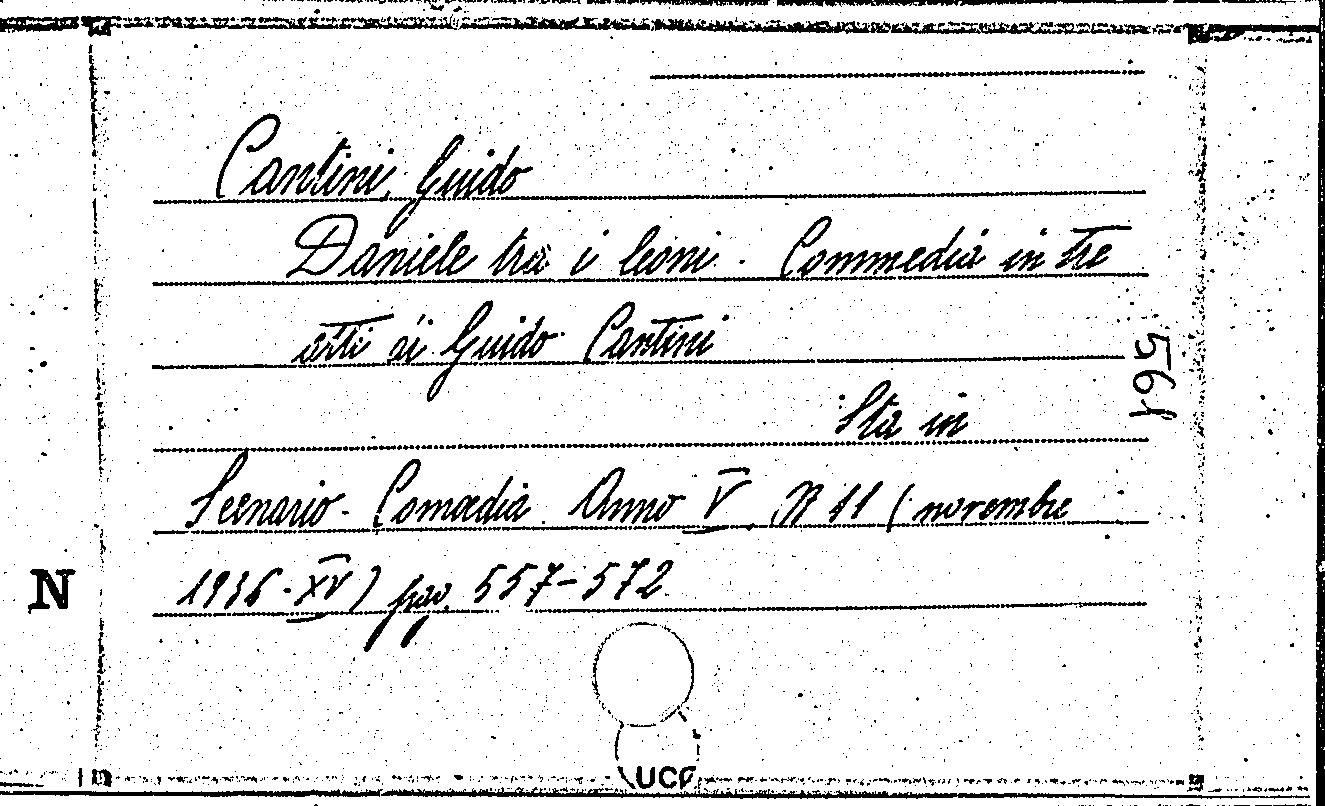 Cantini, Guido
Daniele tra i leoni. Commedia in tre
atti di Guido Cantini
561
Sta in
Scenario - Comœdia. Anno V, N 11 (novembre
1936-XV) pag. 557-572
N
UCC